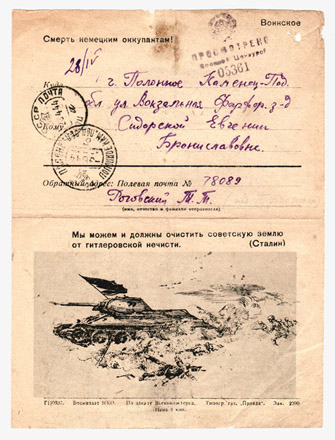 Воинское
Смерть немецким оккупантам!
28/IV
ПРОСМОТРЕНО
Военной Цензурой
03361
Куда г. Полонное Каменец-Под.
обл ул Вокзальная Фарфор. з-д
Кому Сидорской Евгении
Брониславовне.
СССР ПОЧТА
Обратный адрес: Полевая почта № 78089
Роговский Т. Т.
(имя, отчество и фамилия отправителя)
Мы можем и должны очистить советскую землю
от гитлеровской нечисти. (Сталин)
Воениздат НКО. По заказу Военкниготорга. Типогр. газ. „Правда“. Зак.
Цена